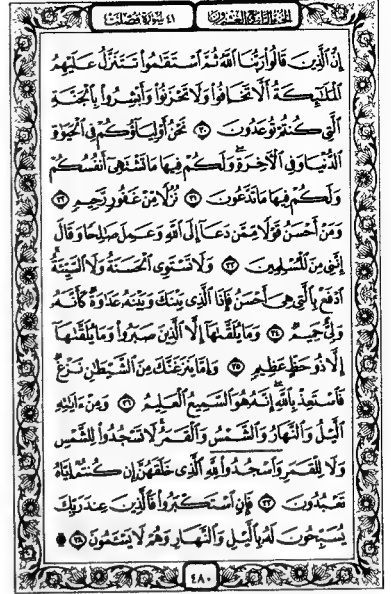 الجزء الرابع والعشرون
٤١ سورة فصلت
إِنَّ الَّذِينَ قَالُوا رَبُّنَا اللَّهُ ثُمَّ اسْتَقَامُوا تَتَنَزَّلُ عَلَيْهِمُ
الْمَلَائِكَةُ أَلَّا تَخَافُوا وَلَا تَحْزَنُوا وَأَبْشِرُوا بِالْجَنَّةِ
الَّتِي كُنْتُمْ تُوعَدُونَ ٣٠ نَحْنُ أَوْلِيَاؤُكُمْ فِي الْحَيَاةِ
الدُّنْيَا وَفِي الْآخِرَةِ وَلَكُمْ فِيهَا مَا تَشْتَهِي أَنْفُسُكُمْ
وَلَكُمْ فِيهَا مَا تَدَّعُونَ ٣١ نُزُلًا مِنْ غَفُورٍ رَحِيمٍ ٣٢
وَمَنْ أَحْسَنُ قَوْلًا مِمَّنْ دَعَا إِلَى اللَّهِ وَعَمِلَ صَالِحًا وَقَالَ
إِنَّنِي مِنَ الْمُسْلِمِينَ ٣٣ وَلَا تَسْتَوِي الْحَسَنَةُ وَلَا السَّيِّئَةُ
ادْفَعْ بِالَّتِي هِيَ أَحْسَنُ فَإِذَا الَّذِي بَيْنَكَ وَبَيْنَهُ عَدَاوَةٌ كَأَنَّهُ
وَلِيٌّ حَمِيمٌ ٣٤ وَمَا يُلَقَّاهَا إِلَّا الَّذِينَ صَبَرُوا وَمَا يُلَقَّاهَا
إِلَّا ذُو حَظٍّ عَظِيمٍ ٣٥ وَإِمَّا يَنْزَغَنَّكَ مِنَ الشَّيْطَانِ نَزْغٌ
فَاسْتَعِذْ بِاللَّهِ إِنَّهُ هُوَ السَّمِيعُ الْعَلِيمُ ٣٦ وَمِنْ آيَاتِهِ
اللَّيْلُ وَالنَّهَارُ وَالشَّمْسُ وَالْقَمَرُ لَا تَسْجُدُوا لِلشَّمْسِ
وَلَا لِلْقَمَرِ وَاسْجُدُوا لِلَّهِ الَّذِي خَلَقَهُنَّ إِنْ كُنْتُمْ إِيَّاهُ
تَعْبُدُونَ ٣٧ فَإِنِ اسْتَكْبَرُوا فَالَّذِينَ عِنْدَ رَبِّكَ
يُسَبِّحُونَ لَهُ بِاللَّيْلِ وَالنَّهَارِ وَهُمْ لَا يَسْأَمُونَ ٣٨
٤٨٠